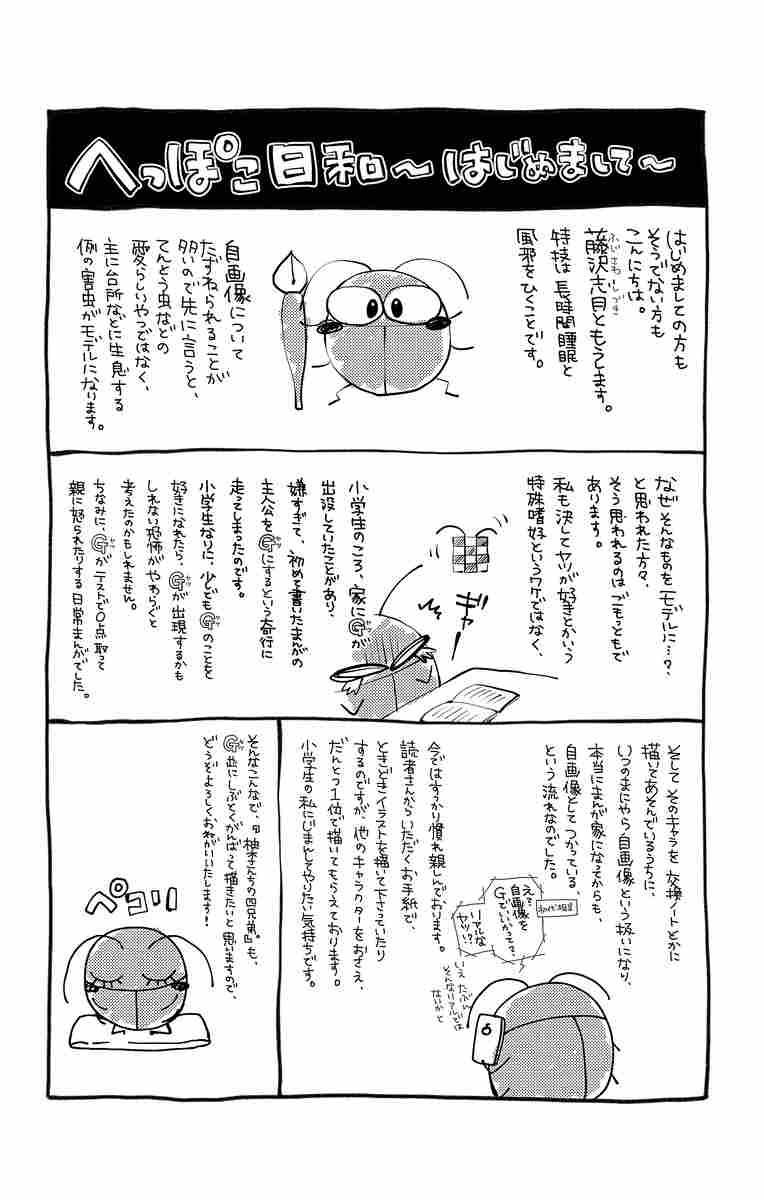 へっぽこ日和～はじめまして～
はじめましての方も
そうでない方も
こんにちは。
藤沢志月ともうします。
ふじさわしづき
特技は長時間睡眠と
風邪をひくことです。
自画像について
たずねられることが
多いので先に言うと、
てんとう虫などの
愛らしいやつではなく、
主に台所などに生息する
例の害虫がモデルになります。
なぜそんなものをモデルに…?、
と思われた方々、
そう思われるのはごもっともで
あります。
私も決してヤツが好きとかいう
特殊嗜好というワケではなく、
ギャー!
小学生のころ、家にGが
出没していたことがあり、
嫌すぎて、初めて書いたまんがの
主人公をGにするという奇行に
走ってしまったのです。
小学生なりに、少しでもGのことを
好きになれたら、Gが出現するかも
しれない恐怖がやわらぐと
考えたのかもしれません。
ちなみに、Gがテストで0点取って
親に怒られたりする日常まんがでした。
そしてそのキャラを交換ノートとかに
描いてあそんでいるうちに、
いつのまにやら自画像という扱いになり、
本当にまんが家になってからも、
自画像としてつかっている、
という流れなのでした。
え?自画像を
Gでいくかって…?
リアルな
ヤツ…!?
いえ、たぶん
そんなリアルでは
ないかと
今ではすっかり慣れ親しんでおります。
読者さんからいただくお手紙で、
ときどきイラストを描いて下さっていたり
するのですが、他のキャラクターをおさえ、
だんとつ1位で描いてもらえております。
小学生の私にじまんしてやりたい気持ちです。
そんなこんなで、『柚木さんちの四兄弟。』も、
G並にしぶとくがんばって描きたいと思いますので、
どうぞよろしくおねがいいたします!
ペコリ